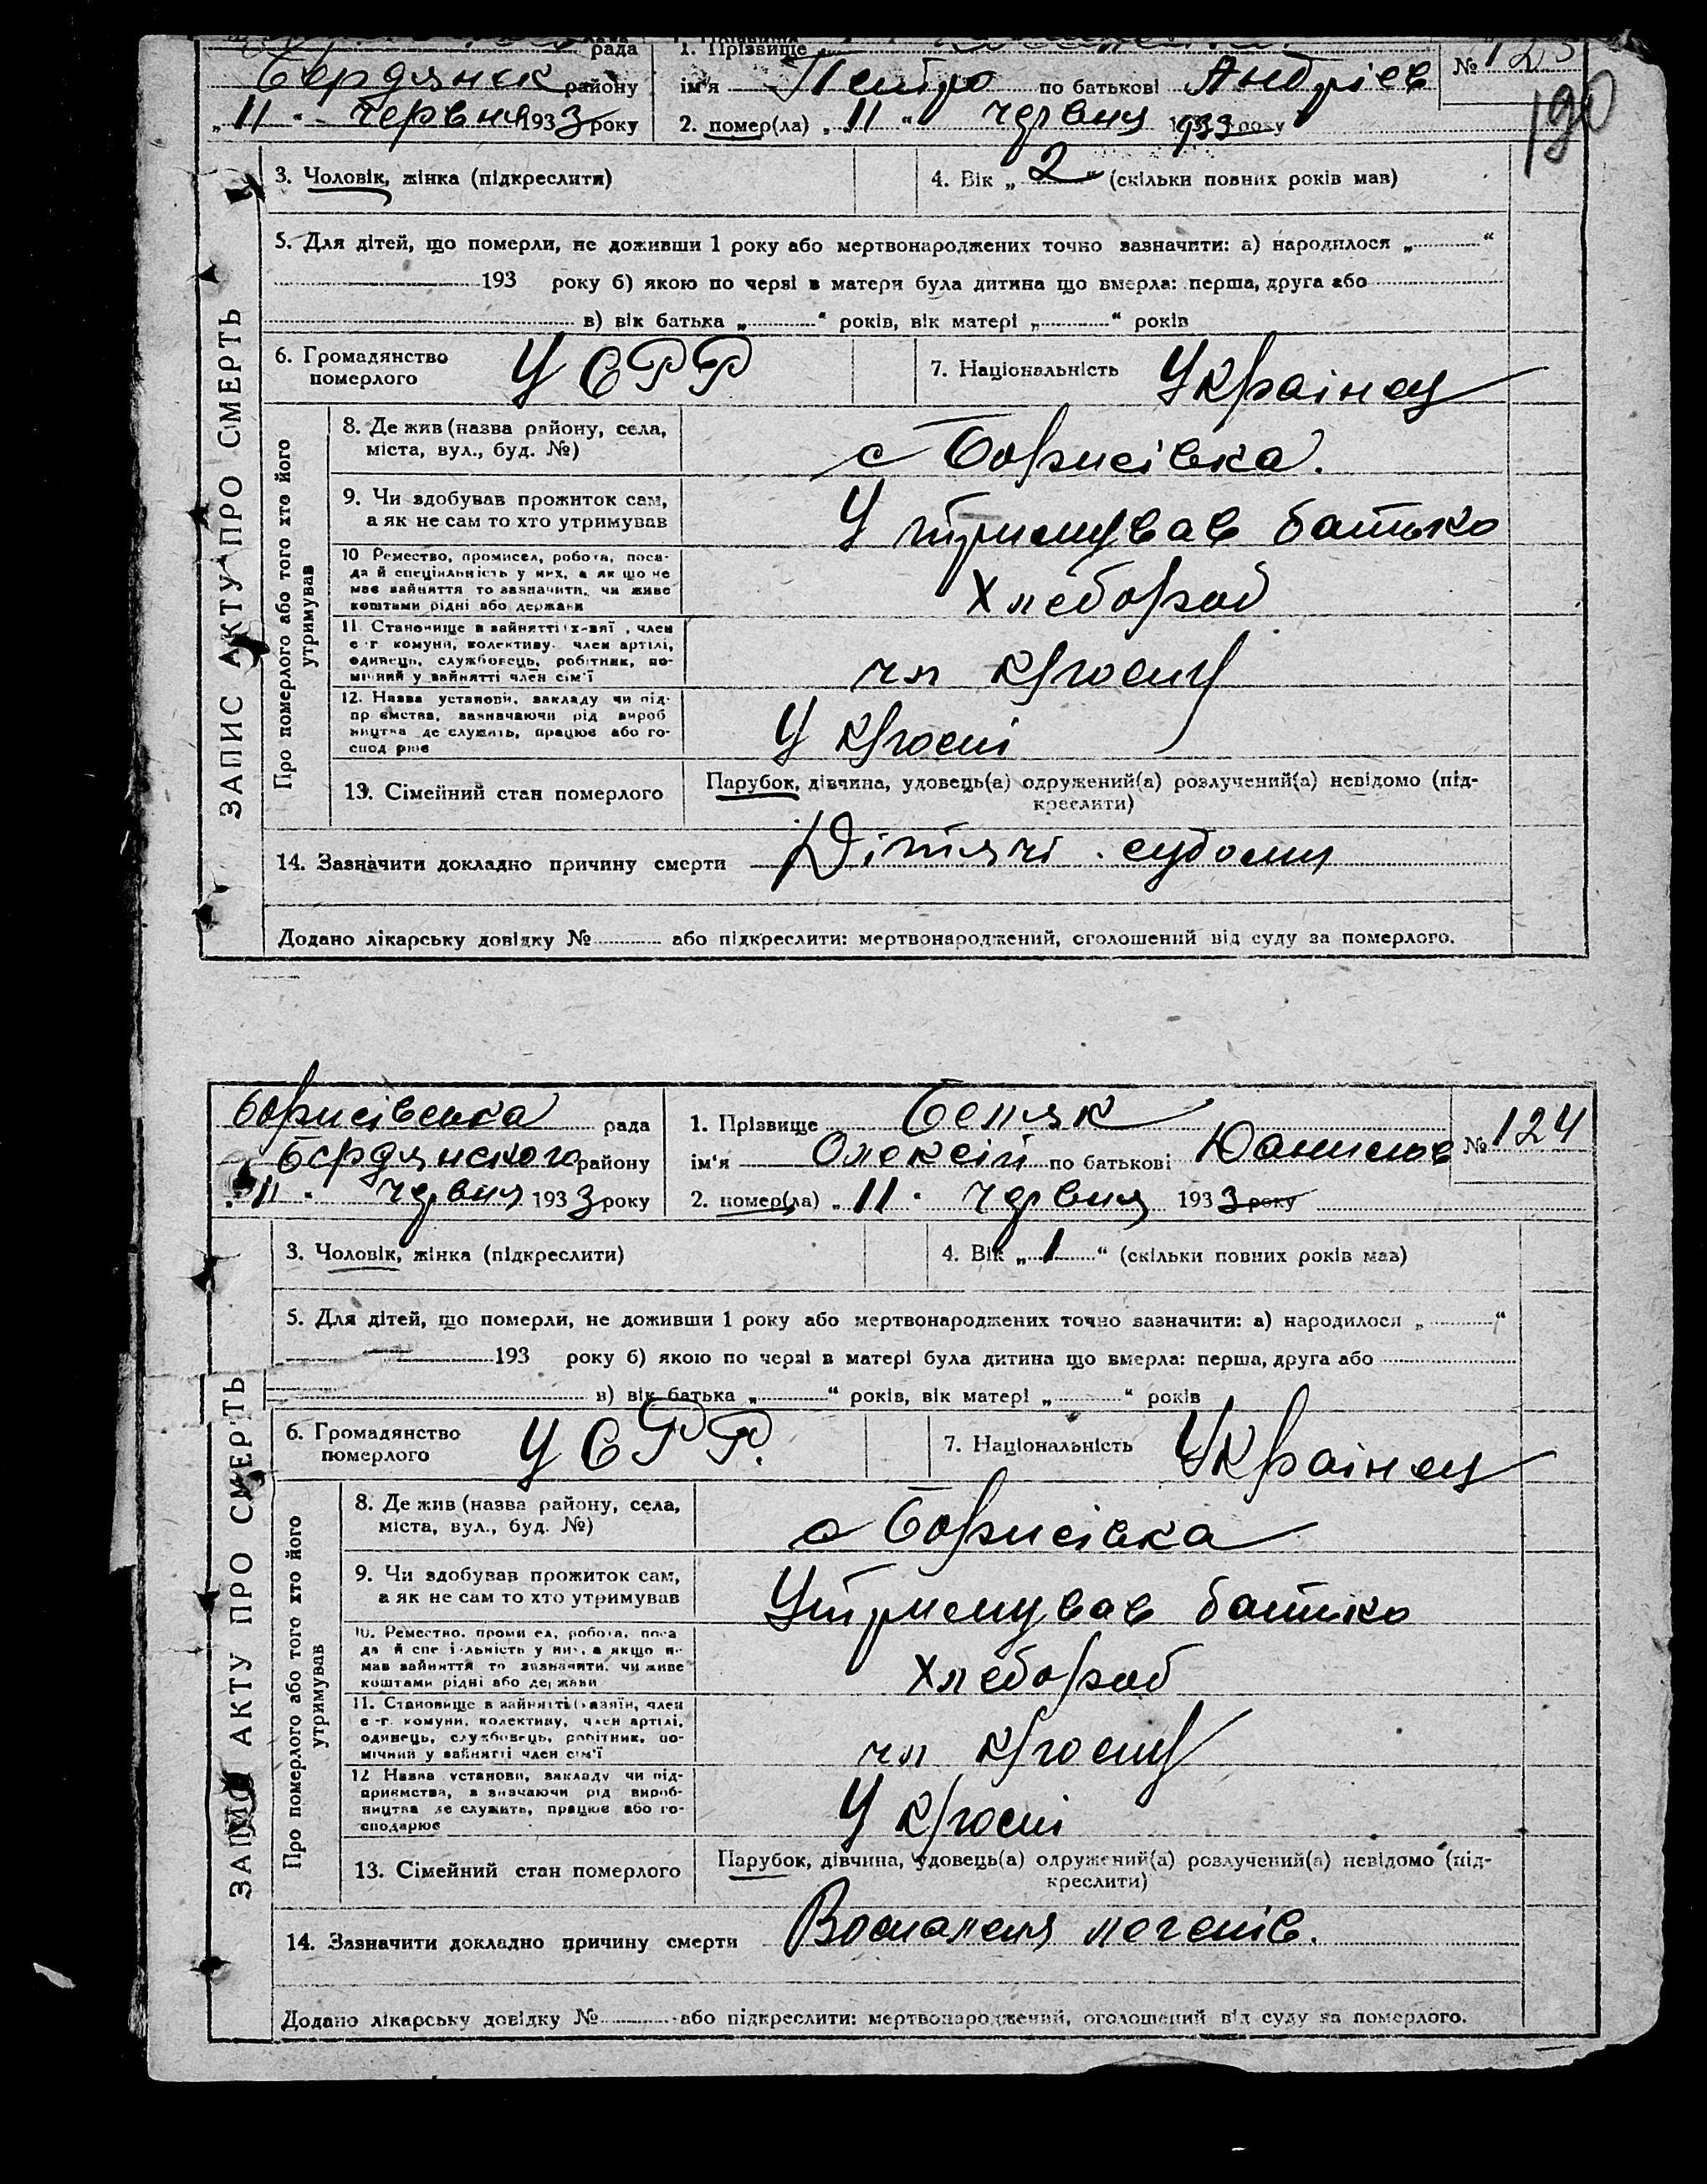 рада
1. Прізвище
№ 123
Бердянск району
ім'я Петро по батькові Андріев
190
„11“ червня 1933 року
2. помер(ла) „11“ червня 1933 року
ЗАПИС АКТУ ПРО СМЕРТЬ
3. Чоловік, жінка (підкреслити)
4. Вік „2“ (скільки повних років мав)
5. Для дітей, що померли, не доживши 1 року або мертвонароджених точно зазначити: а) народилося „ “
193 року б) якою по черзі в матери була дитина що вмерла: перша, друга або
в) вік батька „ “ років, вік матері „ “ років
6. Громадянство померлого
УСРР
7. Національність Украінец
Про померлого або того хто його утримував
8. Де жив (назва району, села,
міста, вул., буд. №)
с Борисівка.
9. Чи здобував прожиток сам,
а як не сам то хто утримував
Утримував батько
10 Ремество, промисел, робота, поса-
да й спеціяльність у них, а як що не
має зайняття то зазначити, чи живе
коштами рідні або держави
Хлебороб
11. Становище в зайнятті х-вяї, член
с-г комуни, колективу, член артілі,
одинець, службовець, робітник, по-
мічний у зайнятті член сім'ї
чл
12. Назва установи, закладу чи під-
пр ємства, зазначаючи рід вироб
ництва де служить, працює або го-
спод рює
У
13. Сімейний стан померлого
Парубок, дівчина, удовець(а) одружений(а) розлучений(а) невідомо (під-
креслити)
14. Зазначити докладно причину смерти Дітячі судоми
Додано лікарську довідку № або підкреслити: мертвонароджений, оголошений від суду за померлого.
Борисівська рада
1. Прізвище Беляк
№ 124
Бердянского району
ім'я Олексій по батькові Данилов
„11“ червня 1933 року
2. помер(ла) „11“ червня 1933 року
ЗАПИС АКТУ ПРО СМЕРТЬ
3. Чоловік, жінка (підкреслити)
4. Вік „1“ (скільки повних років мав)
5. Для дітей, що померли, не доживши 1 року або мертвонароджених точно зазначити: а) народилося „ “
193 року б) якою по черзі в матері була дитина що вмерла: перша, друга або
в) вік батька „ “ років, вік матері „ “ років
6. Громадянство
померлого
УСРР.
7. Національність Украінец
Про померлого або того хто його утримував
8. Де жив (назва району, села,
міста, вул., буд. №)
с Борисівка
9. Чи здобував прожиток сам,
а як не сам то хто утримував
Утримував батько
10. Ремество, проми ел, робота, поса
да й спе і льність у них, а якщо н-
мав зайняття то зазначити, чи живе
коштами рідні або держави
Хлебороб
11. Становище в зайнятті х азяїн, член
с-г. комуни, колективу, член артілі,
одинець, службовець, робітник, по-
мічний у зайнятті член сім'ї
чл
12 Назва установи, закладу чи під-
приємства, зазначаючи рід вироб-
ництва де служить, працює або го-
сподарює
У
13. Сімейний стан померлого
Парубок, дівчина, удовець(а) одружений(а) розлучений(а) невідомо (під-
креслити)
14. Зазначити докладно причину смерти Воспаленя легенів.
Додано лікарську довідку № або підкреслити: мертвонароджений, оголошений від суду за померлого.